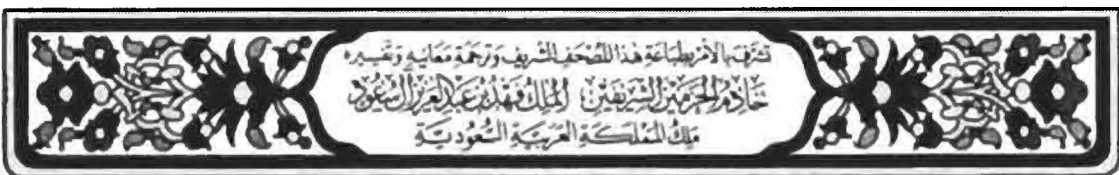 تشرف بالأمر بطباعة هذا المصحف الشريف وترجمة معانيه وتفسيره
خادم الحرمين الشريفين الملك فهد بن عبد العزيز آل سعود
ملك المملكة العربية السعودية